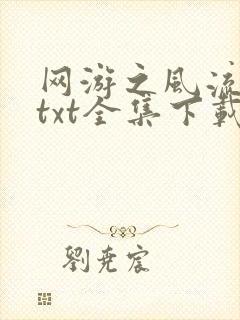 网游之风流
txt全集下载
刘尧宸